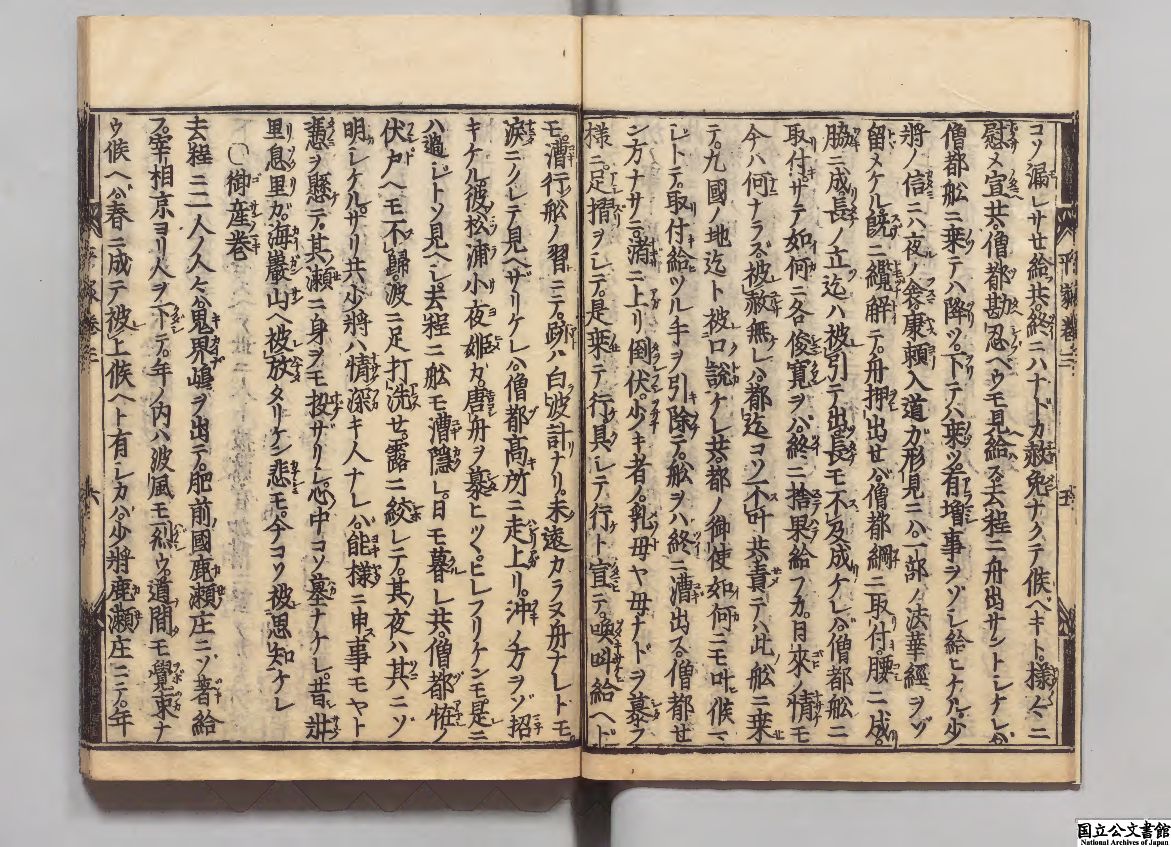 コソ漏レサせ給共終ニハナドカ赦免ナクテ候ヘキト様々ニ
慰メ宣共僧都勘忍ベウモ見給ハズ去程ニ舟出サントシケレバ
僧都舩ニ乗テハ降ツ下テハ乗ツ有増事ヲソシ給ヒケル少
將ノ信ニハ夜ノ衾康頼入道ガ形見ニハ一部ノ法華經ヲゾ
留メケル既ニ纜解テ舟押出せバ僧都綱ニ取付腰ニ成
脇ニ成長ノ立迄ハ被引テ出長モ不及成ケレバ僧都舩ニ
取付サテ如何ニ各俊寛ヲバ終ニ捨果給フカ日來ノ情モ
今ハ何ナラズ被赦無レバ都迄コソ不叶共責テハ此舩ニ乗
テ九國ノ地迄ト被口説ケレ共都ノ御使如何ニモ叶候マ
シトテ取付給ツル手ヲ引除テ舩ヲハ終ニ漕出ス僧都せ
ン方ナサニ渚ニ上リ倒伏少キ者ノ乳母ヤ母ナドヲ慕フ
様ニ足摺ヲシテ是乗テ行具シテ行ト宣テ喚叫給ヘド
モ漕行舩ノ習ニテ跡ハ白波計ナリ未遠カラヌ舟ナレトモ
涙ニクレテ見ヘザリケレバ僧都高所ニ走上リ沖ノ方ヲゾ招
キケル彼松浦小夜姫カ唐舟ヲ慕ヒツヽヒレフリケンモ是ニ
ハ過シトソ見ヘシ去程ニ舩モ漕隠レ日モ暮レ共僧都恠ノ
伏戸ヘモ不歸波ニ足打洗せ露ニ絞レテ其夜ハ其ニソ
明シケルサリ共少將ハ情深キ人ナレバ能様ニ申事モヤト
憑ヲ懸テ其瀬ニ身ヲモ投ザリシ心中コソ墓ナケレ昔壯
里息里ガ海巖山ヘ被放タリケン悲モ今コソ被思知ケレ
〇御産巻
去程ニ二人ノ人々ハ鬼界嶋ヲ出テ肥前國鹿瀬庄ニソ著給
フ宰相京ヨリ人ヲ下テ年ノ内ハ波風モ烈ウ道間モ覺束ナ
ウ候ヘバ春ニ成テ被上候ヘト有シカバ少將鹿瀬庄ニテ年
国立公文書館
National Archives of Japan